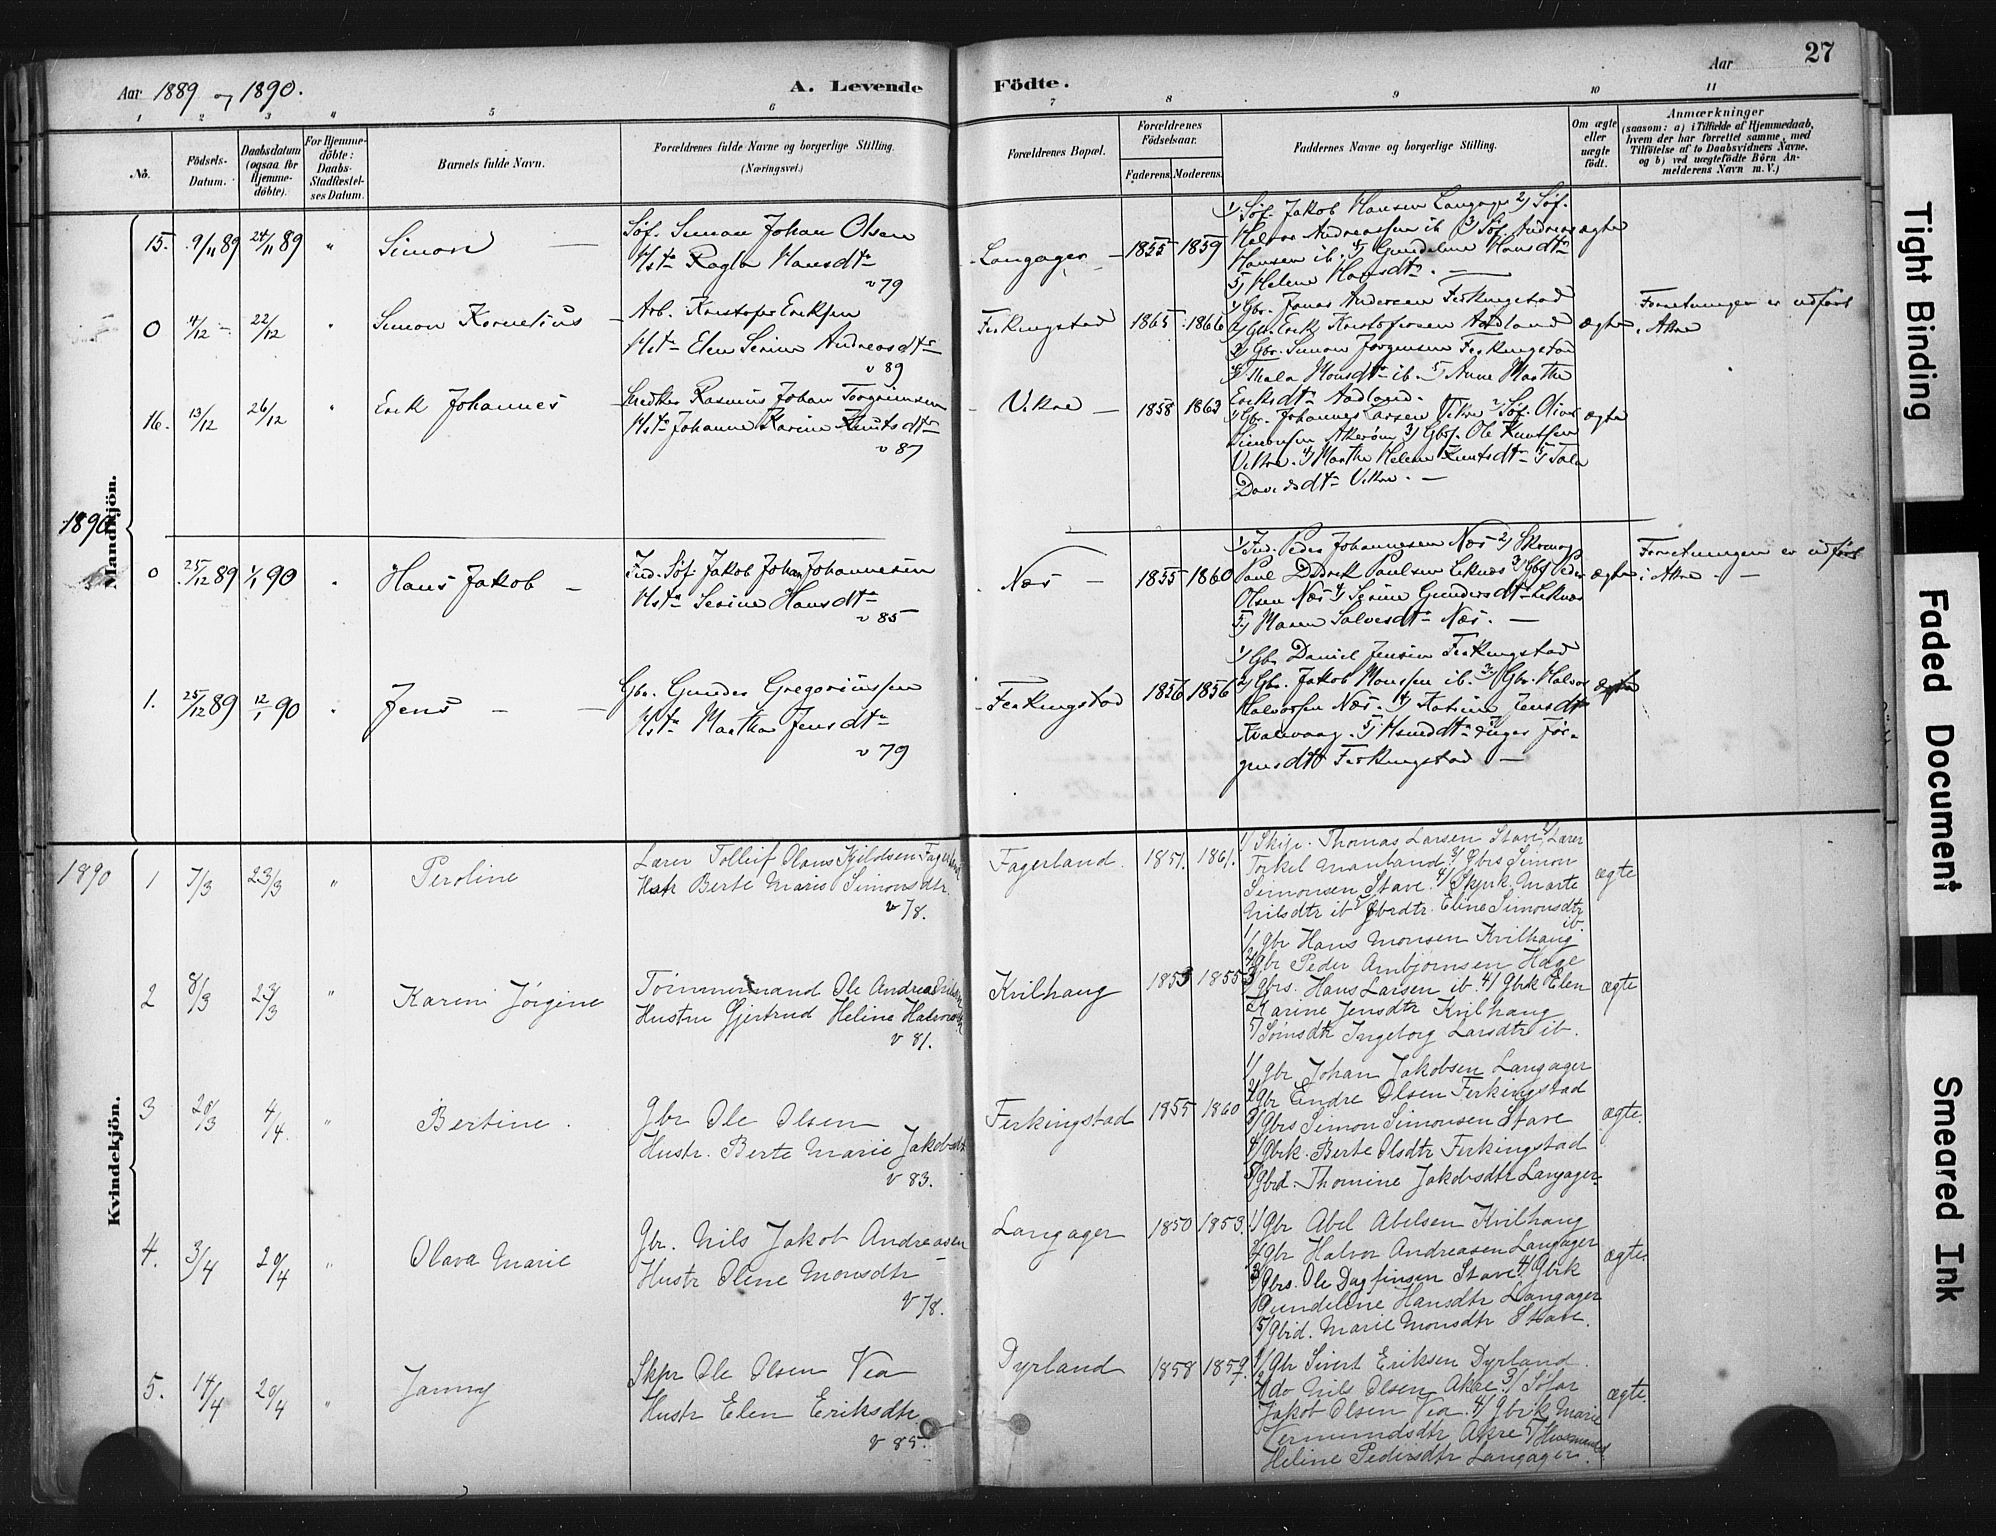 27
Aar 1889 og 1890.
A. Levende Födte.
Aar
1 2 3 " 5 6 7 8 9 10 11
No.
Födsels-Datum.
Daabsdatum (ogsaa for Hjemme-döbte).
For Hjemme-döbte: Daabs-Stadfæstel-ses Datum.
Barnets fulde Navn.
Forældrenes fulde Navne og borgerlige Stilling.
(Næringsvei.)
Forældrenes Bopæl.
Forældrenes Födselsaar.
Faderens. Moderens.
Faddernes Navne og borgerlige Stilling.
Om ægte eller uægte födt.
Anmærkninger
(saasom: a) i Tilfælde af Hjemmedaab,
hvem der har forrettet samme, med
Tilföielse af to Daabsvidners Navne,
og b) ved uægtefödte Börn An-
melderens Navn m. V.)
Mandkjön.
15. 9/11 89 24/11 89 " Simon
Søf. Simon Johan Olsen
Hst Hansdtr
v 79
Langager 1855 1859
1) Søf. Jakob Hansen Langager 2) Søf.
Halvor Andreassen ib 3) Søf. Andreas
Hansen ib. 4) Gundeline Hansdtr
5) Helene Hansdtr.
ægte
0 4/12 22/12 " Simon Kornelius
Arb. Kristofer Eriksen
Hstr Elen Serine Andreasdtr
v 89
Ferkingstad 1865 1866
1) Gbr. Jonas Andersen Ferkingstad
2) Gbr. Erik Kristofersen Aadland
3) Gbr. Simon Jørgensen Ferkingstad
4) Monsdtr ib. 5) Anne Marthe
Eriksdtr Aadland.
ægte
Forretningen er udført
i Akre
16. 13/12 26/12 " Erik Johannes
Rasmus Johan Torgrimsen
Hstr Johanne Karine Knutsdtr
v 87
Vikre 1858 1862
1) Gbr. Johannes Larsen Vikre 2) Søf. Oliver
Simonsen 3) Gbsf. Ole Knutsen
Vikre. 4) Marthe Helene Knutsdtr 5) Tala
Davidsdtr Vikre.
ægte
1890
0 25/12 89 1/1 90 " Hans Jakob
Ind. Søf. Jakob Johan Johannesen
Hstr Serine Hansdtr
v 85
Næs 1855 1860
1) Ind. Peder Johannesen Næs 2)
Paul Didrik Paulsen Leknes 3) Gbsf. Peder
Olsen Næs 4) Serine Gundersdtr Leknes
5) Maren Salvesdtr Næs.
ægte
Forretningen er udført
i Akre
1. 25/12 89 12/1 90 " Jens
Gbr. Gunder Gregoriussen
Hstr Martha Jensdtr
v 79
Ferkingstad 1856 1856
1) Gbr Daniel Jensen Ferkingstad
2) Gbr. Jakob Monssen ib. 3) Gbr. Halvor
Halvorsen Næs. 4) Katrine Jensdtr
Kvalevaag. 5) Inger Jør-
gensdtr Ferkingstad
ægte
Kvindekjön.
1890 1 7/3 23/3 " Peroline
Lærer Tolleif Olaus Kjeldsen Fagerland
Hustr Berte Maria Simonsdtr.
v 78.
Fagerland. 1851. 1861.
1/ Skipr. Thomas Larsen Stave 2/ Lærer
Torkel Manland 3/ Gbrs Simon
Simonsen Stave. 4/ Skprk. Marte
Nilsdtr ib 5/ Gbrdtr. Eline Simonsdtr
ib.
ægte
2 8/3 23/3 " Karen Jørgine
Tømmermand Ole Andreas Nilsen
Hustru Gjertrud Heline Halvorsdtr
v 81.
Kvilhaug 1853 1855
1/ gbr Hans Monsen Kvilhaug
2/ gbr Peder Ambjørnsen Hage
3/ gbrs. Hans Larsen ib. 4/ Gbrk Elen
Karine Jensdtr Kvilhaug
5/ Ingeborg Larsdtr ib.
ægte
3 20/3 4/4 " Bertine.
Gbr Ole Olsen
Hustr. Berte Marie Jakobsdtr
v 83.
Ferkingstad 1855 1860
1/ gbr Johan Jakobsen Langager
2/ gbr Endre Olsen Ferkingstad
3/ gbrs Simon Simonsen Stave
4/ gbrk. Berte Olsdtr Ferkingstad
5/ gbrd. Thomine Jakobsdtr Langager.
ægte.
4. 3/4 20/4 " Olava Marie
Gbr. Nils Jakob Andreasen
Hustr Olene Monsdtr
v 78.
Langager 1850 1853.
1/ Gbr Abel Abelsen Kvilhaug
2/ gbr Halvor Andreasen Langager
3/ Gbrs. Ole Dagfinsen Stave. 4/ Gbrk
Gundeline Hansdtr Langager
5/ gbrd. Marie Monsdtr Stave.
ægte.
5. 14/4 20/4 " Janny
Skpr Ole Olsen Vea
Hustr Elen Eriksdtr
v 85.
Dyrland 1858 1859.
1/ Gbr Sivert Eriksen Dyrland.
2/ do Nils Olsen Akre. 3/ Søfar
Jakob Olsen Vea. 4/ Gbrk Marie
Vermundsdtr Akre 5/
Heline Pedersdtr Langager.
ægte.
Tight Binding
Faded Document
Smeared Ink